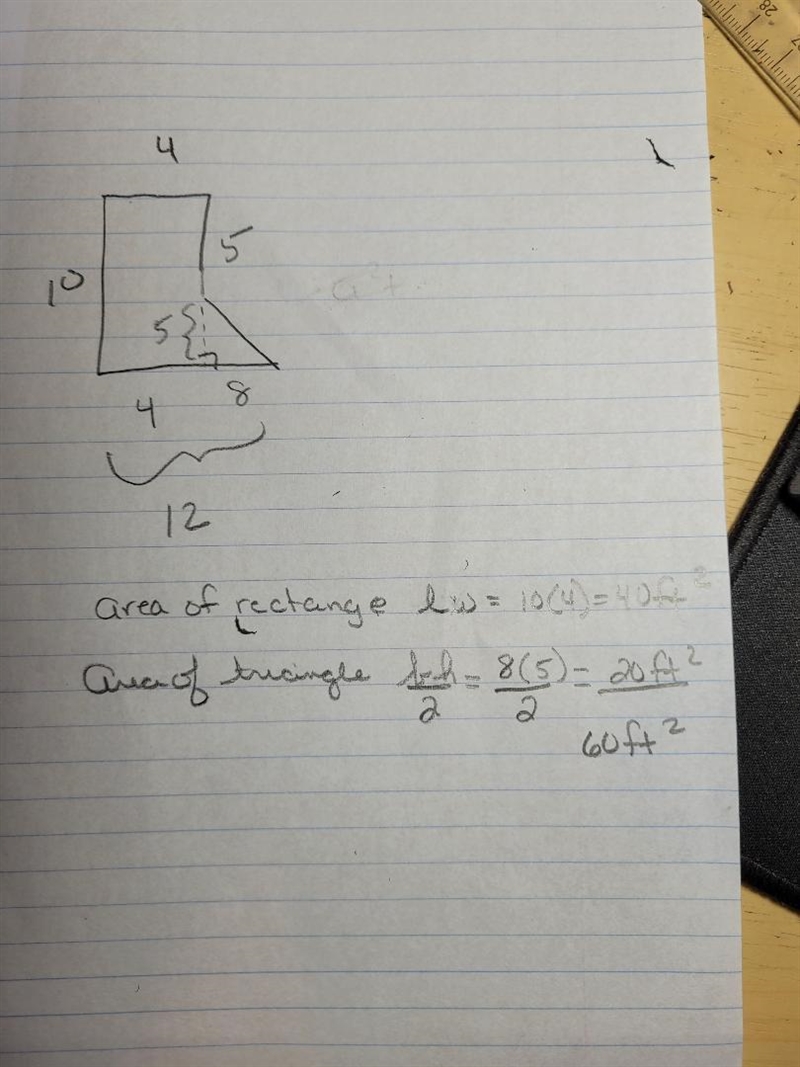 4
10
5
5
4
8
12
a²+
area of rectange lw = 10(4) = 40ft²
area of triangle b·h/2 = 8(5)/2 = 20ft²
60ft²
28
27